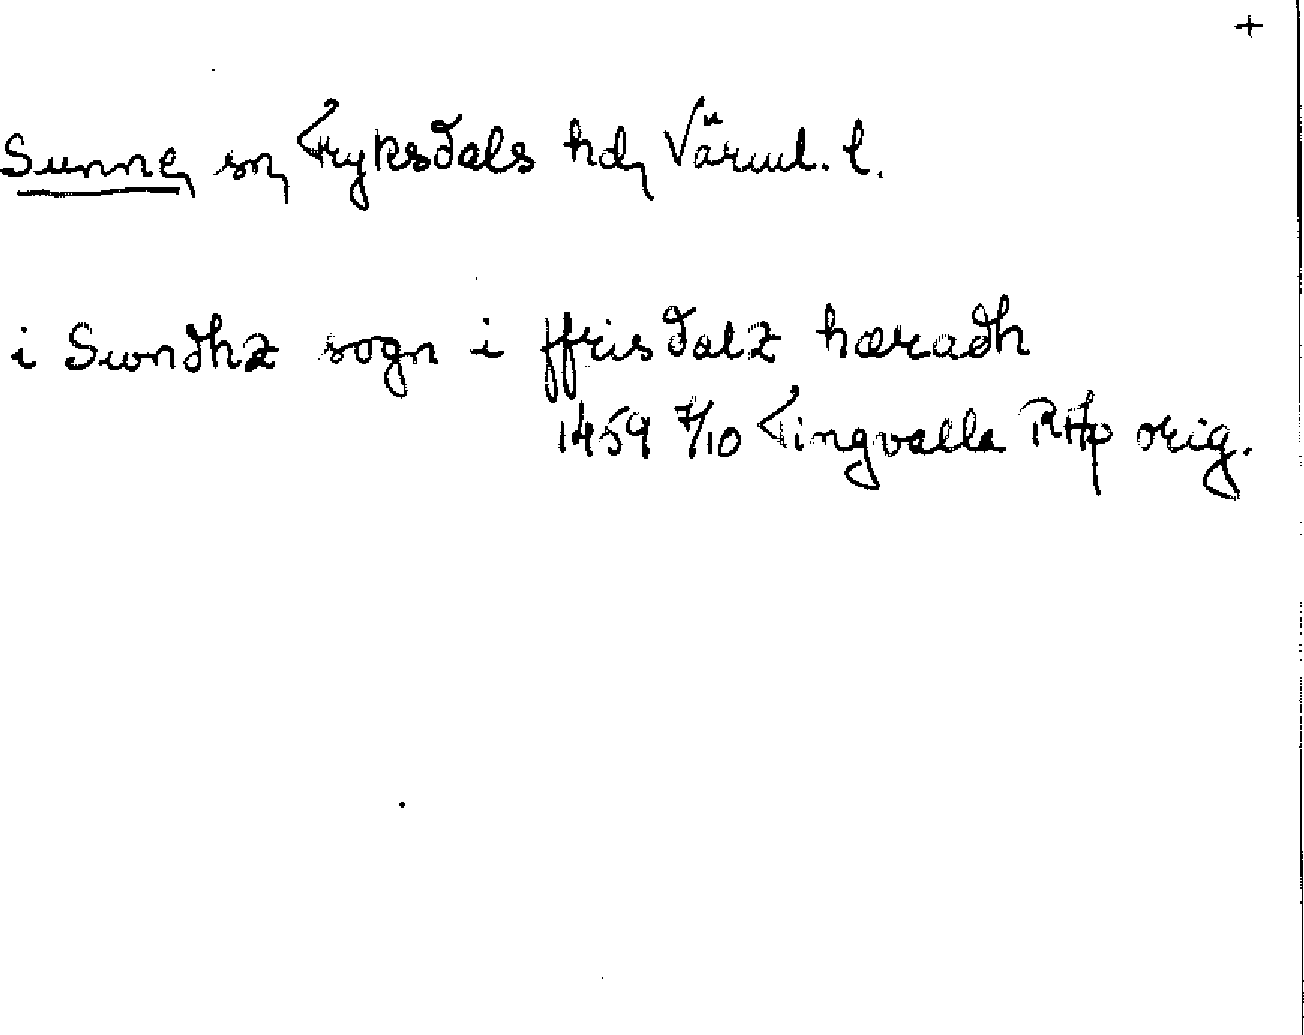 +
Sunne, sn, Fryksdals hd, Värml. l.
i Swndhz sogn i ffrisdalz hæradh
1459 7/10 Tingvalla RAp orig.